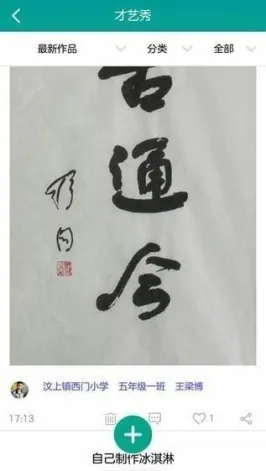 才艺秀
最新作品 分类 全部
古通今
汶上镇西门小学 五年级一班 王梁博
17:13 1
自己制作冰淇淋